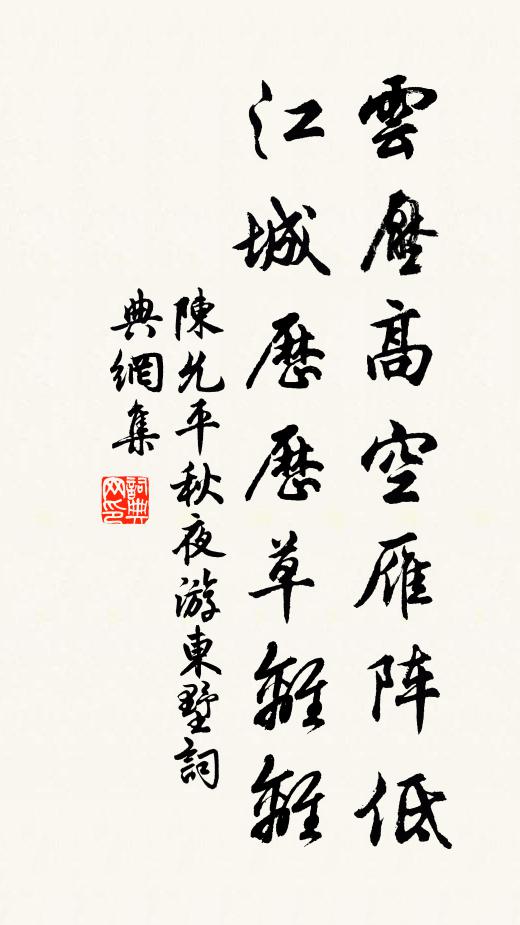 雲壓高空雁阵低
江城歷歷草離離
陳允平秋夜游東墅詞
典網集
詞典网印